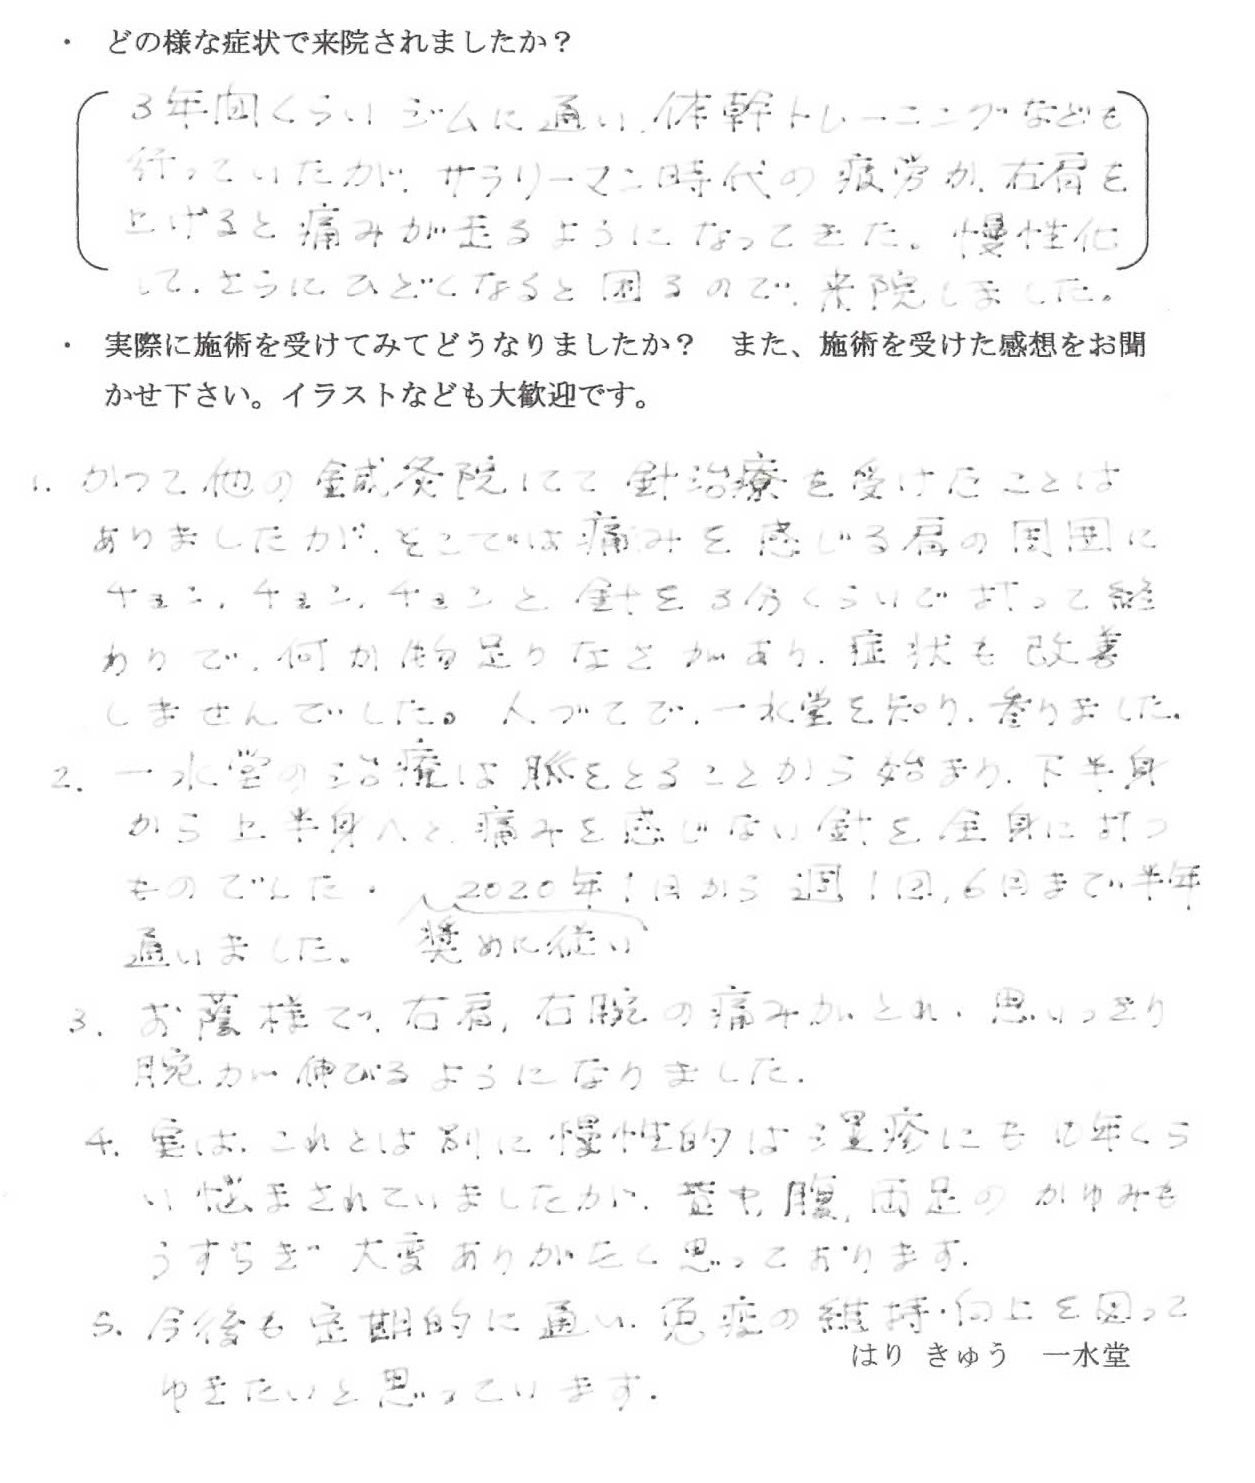 ・ どの様な症状で来院されましたか？
3年間くらいジムに通い、体幹トレーニングなども
行っていたが、サラリーマン時代の疲労か、右肩を
上げると痛みが走るようになってきた。慢性化
して、さらにひどくなると困るので、来院しました。
・ 実際に施術を受けてみてどうなりましたか？ また、施術を受けた感想をお聞
かせ下さい。イラストなども大歓迎です。
1. かつて他の鍼灸院にて針治療を受けたことは
ありましたが、そこでは痛みを感じる肩の周囲に
チョン、チョン、チョンと針を3分くらいで打って終
わりで、何か物足りなさがあり、症状も改善
しませんでした。人づてで、一水堂を知り、参りました。
2. 一水堂の治療は脈をとることから始まり、下半身
から上半身へと、痛みを感じない針を全身に打つ
ものでした。 2020年1月から週1回、6月まで半年
通いました。 奨めに従い
3. お蔭様で、右肩、右腕の痛みがとれ、思いっきり
腕が伸びるようになりました。
4. 実は、これとは別に慢性的は湿疹にも10年くら
い悩まされていましたが、背中、腹、両足のかゆみも
うすらぎ 大変ありがたく思っております。
5. 今後も定期的に通い、免疫の維持・向上を図って
はり きゅう 一水堂
ゆきたいと思っています。